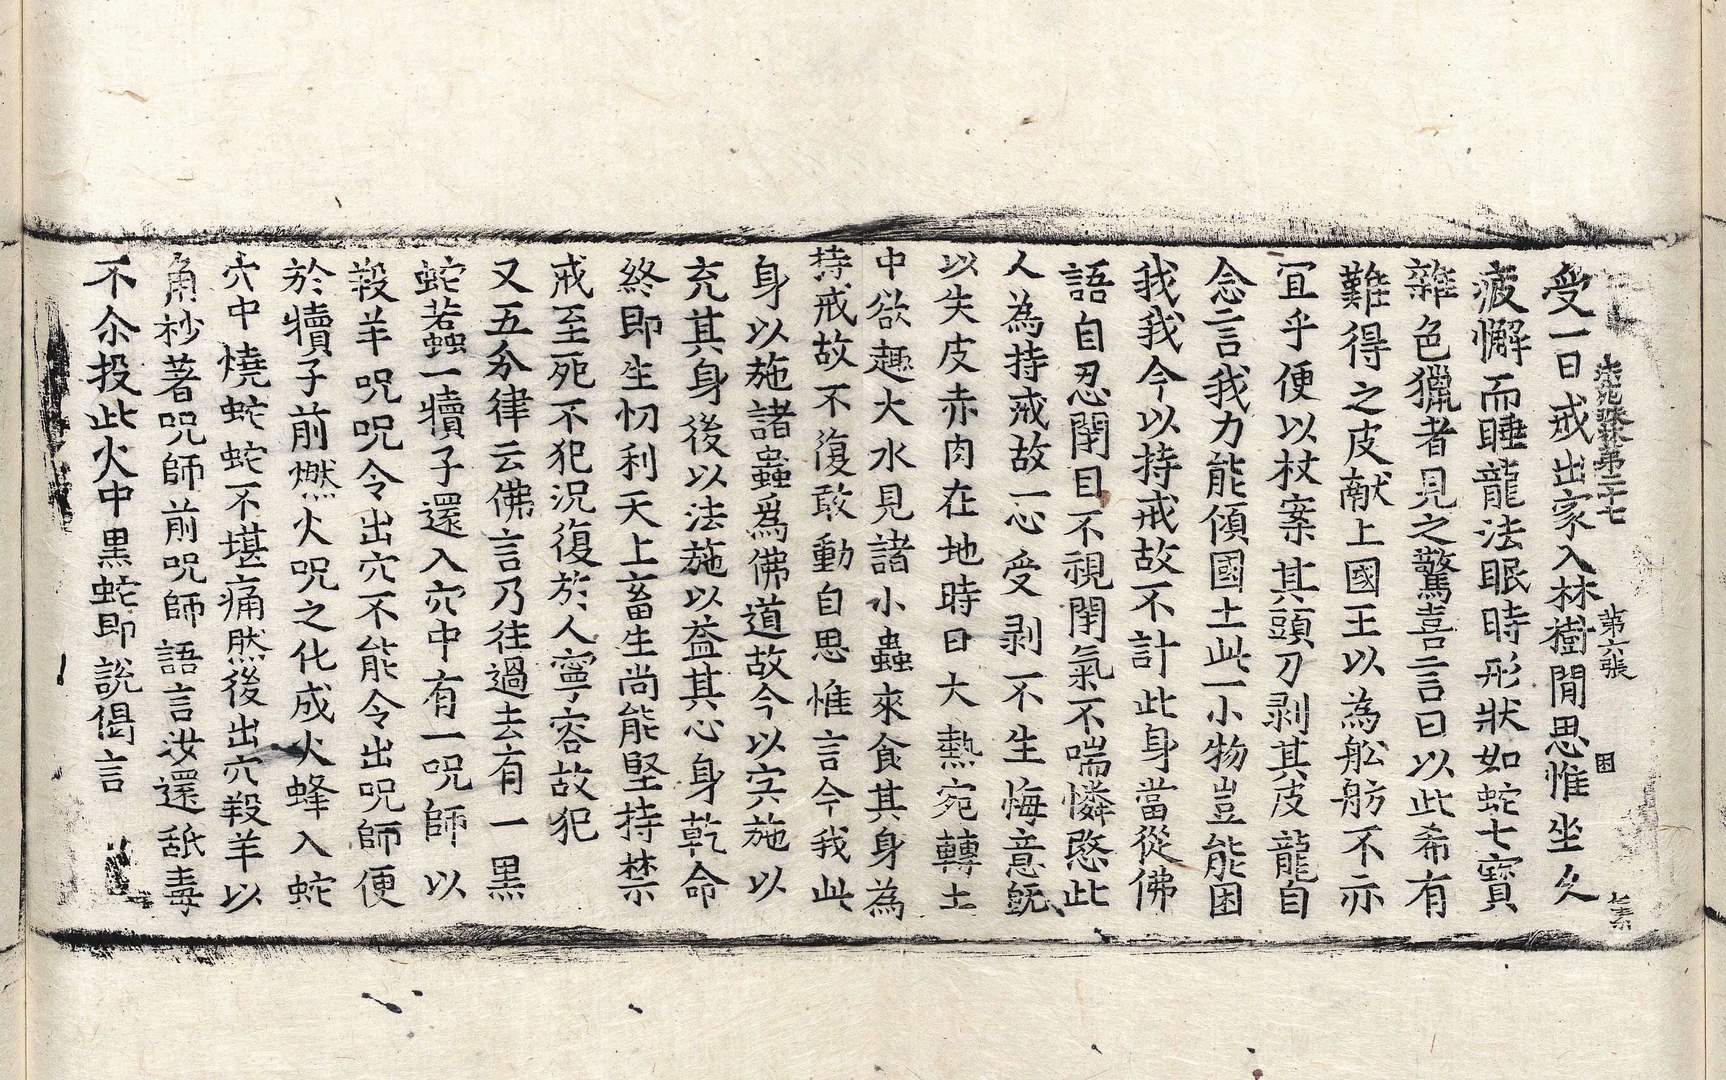 法苑珠林第二十七 第六張 囷
受一日戒出家入林樹間思惟坐久
疲懈而睡龍法眠時形狀如蛇七寶
雜色獵者見之驚喜言曰以此希有
難得之皮献上國王以為舩舫不亦
冝乎便以杖案其頭刀剥其皮龍自
念言我力能傾國土此一小物豈能困
我我今以持戒故不計此身當從佛
語自忍閉目不視閉氣不喘憐愍此
人為持戒故一心受剥不生悔意旣
以失皮赤肉在地時日大熱宛轉土
中欲趣大水見諸小蟲來食其身為
持戒故不復敢動自思惟言今我此
身以施諸蟲爲佛道故今以宍施以
充其身後以法施以益其心身乾命
終即生忉利天上畜生尚能堅持禁
戒至死不犯況復於人寧容故犯
又五分律云佛言乃往過去有一黒
蛇若螫一犢子還入穴中有一呪師以
羖羊呪呪令出穴不能令出呪師便
於犢子前燃火呪之化成火蜂入蛇
穴中燒蛇蛇不堪痛然後出穴羖羊以
角抄著呪師前呪師語言汝還舐毒
不尒投此火中黒蛇即說偈言